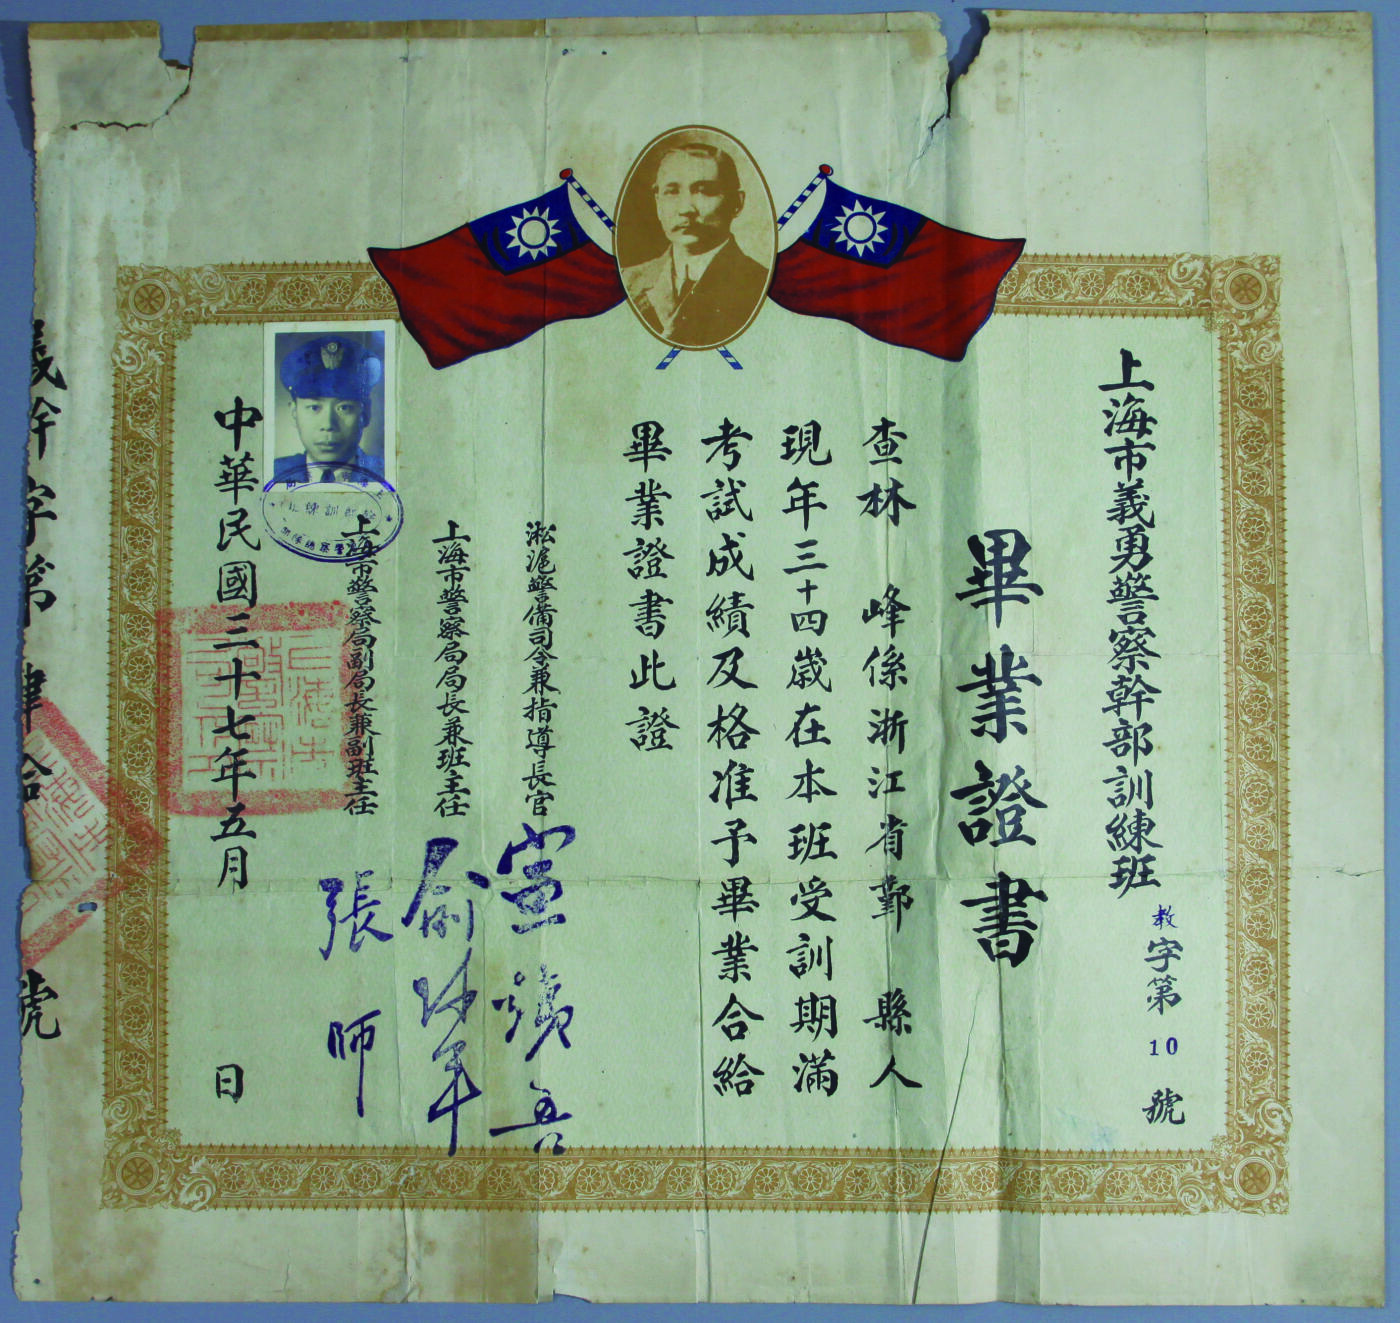 上海市義勇警察幹部訓練班
教字第10號
畢業證書
查林 峰係浙江省鄞 縣人
現年三十四歲在本班受訓期滿
考試成績及格准予畢業合給
畢業證書此證
淞滬警備司令兼指導長官 宣鐵吾
上海市警察局局長兼班主任 俞叔平
上海市警察局副局長兼副班主任 張師
中華民國三十七年五月 日
義幹字第肆拾 號